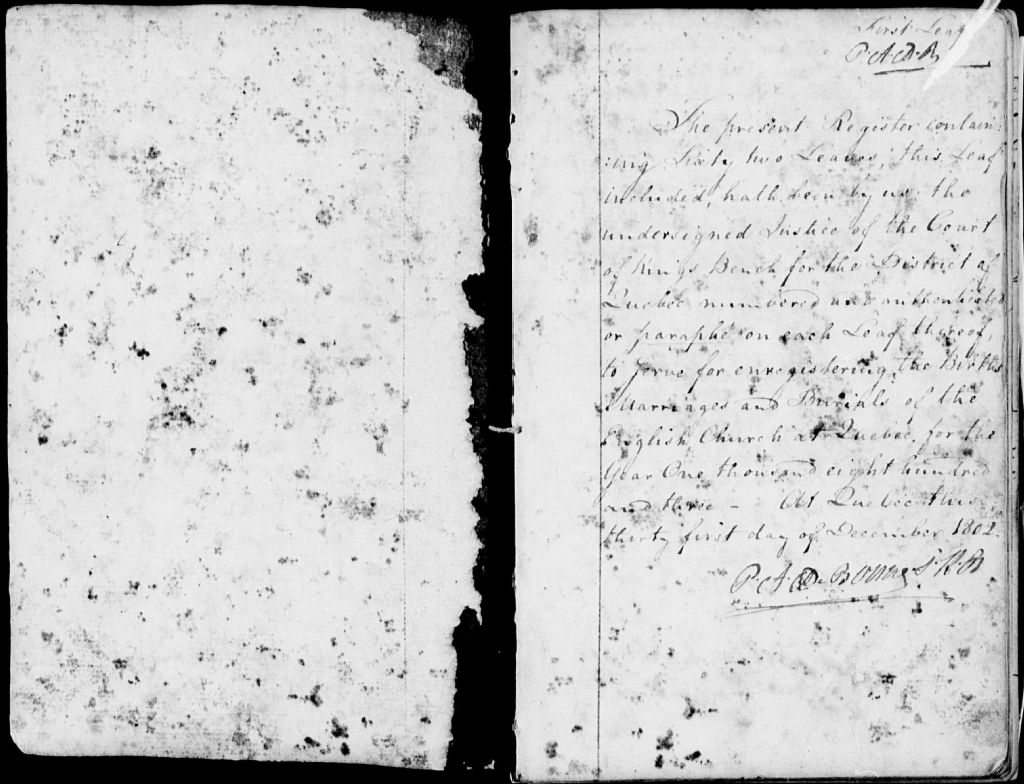 First Leaf
P. A. D. B
The present Register contain:
:ing Sixty two Leaves, this Leaf
included, hath been by us the
undersigned Justice of the Court
of Kings Bench for the District of
Quebec numbered and authenticated
or paraphé on each Leaf thereof,
to serve for enregistering the Births
Marriages and Burials of the
English Church at Quebec, for the
Year One thousand eight hundred
and three - At Quebec this
thirty first day of December 1802.
P. A. De Bonne J. K. B